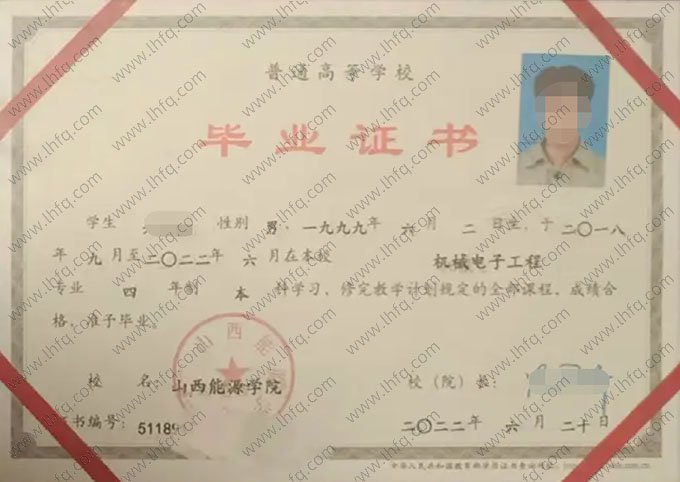 普通高等学校
毕业证书
学生 性别 男,一九九九年 六月 二 日生,于 二〇一八
年 九 月至二〇二二年 六 月在本校 机械电子工程
专业 四 年制 本 科学习,修完教学计划规定的全部课程,成绩合
格,准予毕业。
校 名: 山西能源学院 校(院)长:
书编号: 5118 二〇二二年 六 月 二十日
中华人民共和国教育部学历证书查询网址:
www.lhfq.com